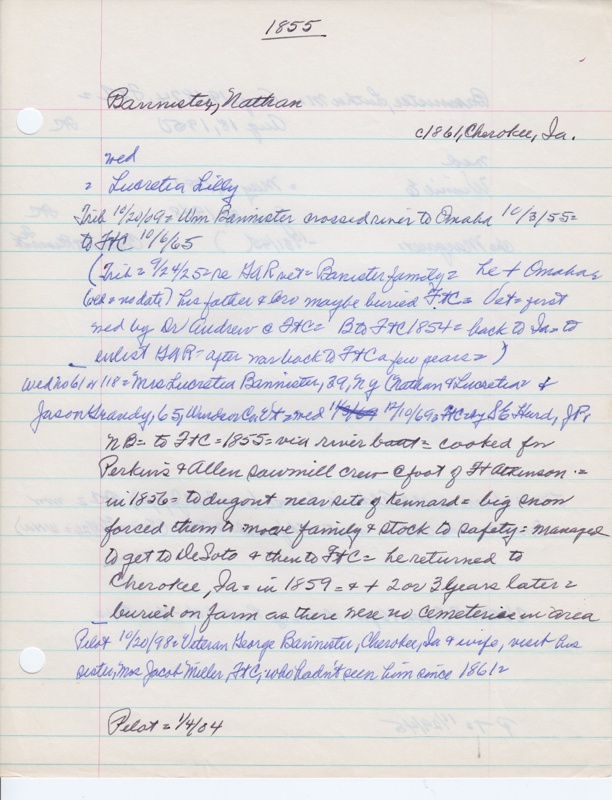 1855
Bannister, Nathan
c1861, Cherokee, Ia.
wed
= Lucretia Lilly
Trib 10/20/09 = Wm Bannister crossed river to Omaha 10/3/55 =
to FtC 10/6/65
(Trib = 9/24/25 = re GAR vet = Banister family = he + Omaha,
(wed = no date) his father & bro maybe buried FtC = Vet = first
wed by Dr Andrew @ FtC = B to FtC 1854 = back to Ia = to
enlist GAR = after war back to FtC a few years = )
wed no 61 or 118 = Mrs Lucretia Bannister, 39, NY (Nathan & Lucretia = &
Jason Grandy, 65, Windsor Co Vt = wed 12/10/69 = FtC by S E Hurd, JP,
NB = to FtC = 1855 = via river boat = cooked for
Perkins & Allen sawmill crew @ foot of Ft Atkinson =
in 1856 = to dugout near site of Kennard = big snow
forced them to move family & stock to safety = managed
to get to DeSoto & then to FtC = he returned to
Cherokee, Ia = in 1859 = & + 2 or 3 years later =
buried on farm as there were no cemeteries in area
Pilot 10/20/98 = Veteran George Bannister, Cherokee, Ia & wife, visit his
sister, Mrs Jacob Miller, FtC, who hadn't seen him since 1861 =
Pilot = 1/4/04